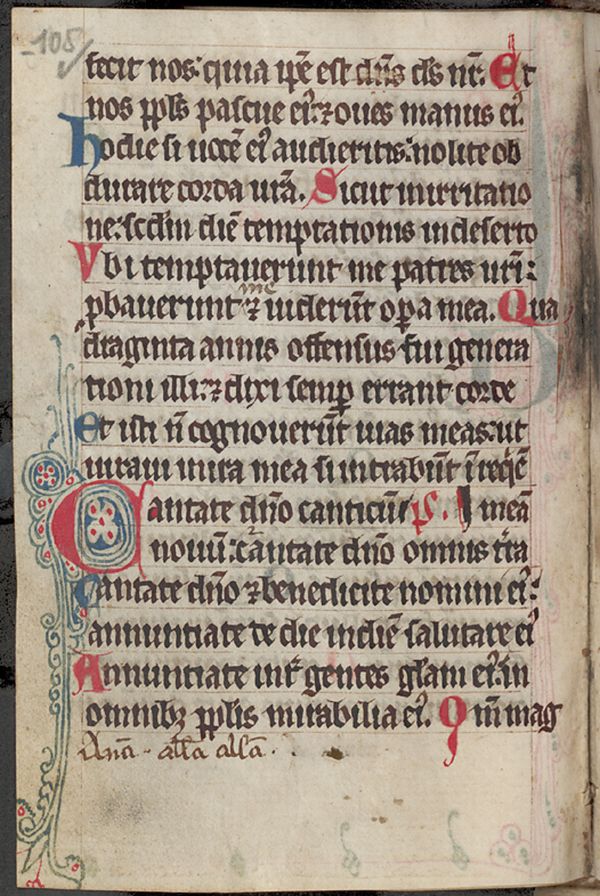 105
fecit nos: quia ip̄e est dn̄s ds̄ nr̄. Et
nos ppl̄s pascue eiꝰ: ⁊ oues manus eiꝰ.
hodie si uocē eiꝰ audieritis: nolite ob
durare corda urā. Sicut in irritatio
ne: scdm diē temptationis in deserto
Vbi temptauerunt me patres urī:
ꝓbauerunt me ⁊ uiderūt oꝑa mea. Qua
draginta annis offensus fui genera
tioni illi: ⁊ dixi semꝑ errant corde
Et isti n̄ cognouerūt uias meas: ut
iuraui in ira mea si intrabūt ī reqiē
Cantate dn̄o canticū ps. meā
nouū: cantate dn̄o omnis tr̄a
Cantate dn̄o ⁊ benedicite nomini eiꝰ:
annuntiate de die in diē salutare eiꝰ
Annuntiate int̄ gentes glām eiꝰ: in
omnibꝫ ppl̄is mirabilia eiꝰ. Qm̄ mag
Anā. all̄a all̄a.